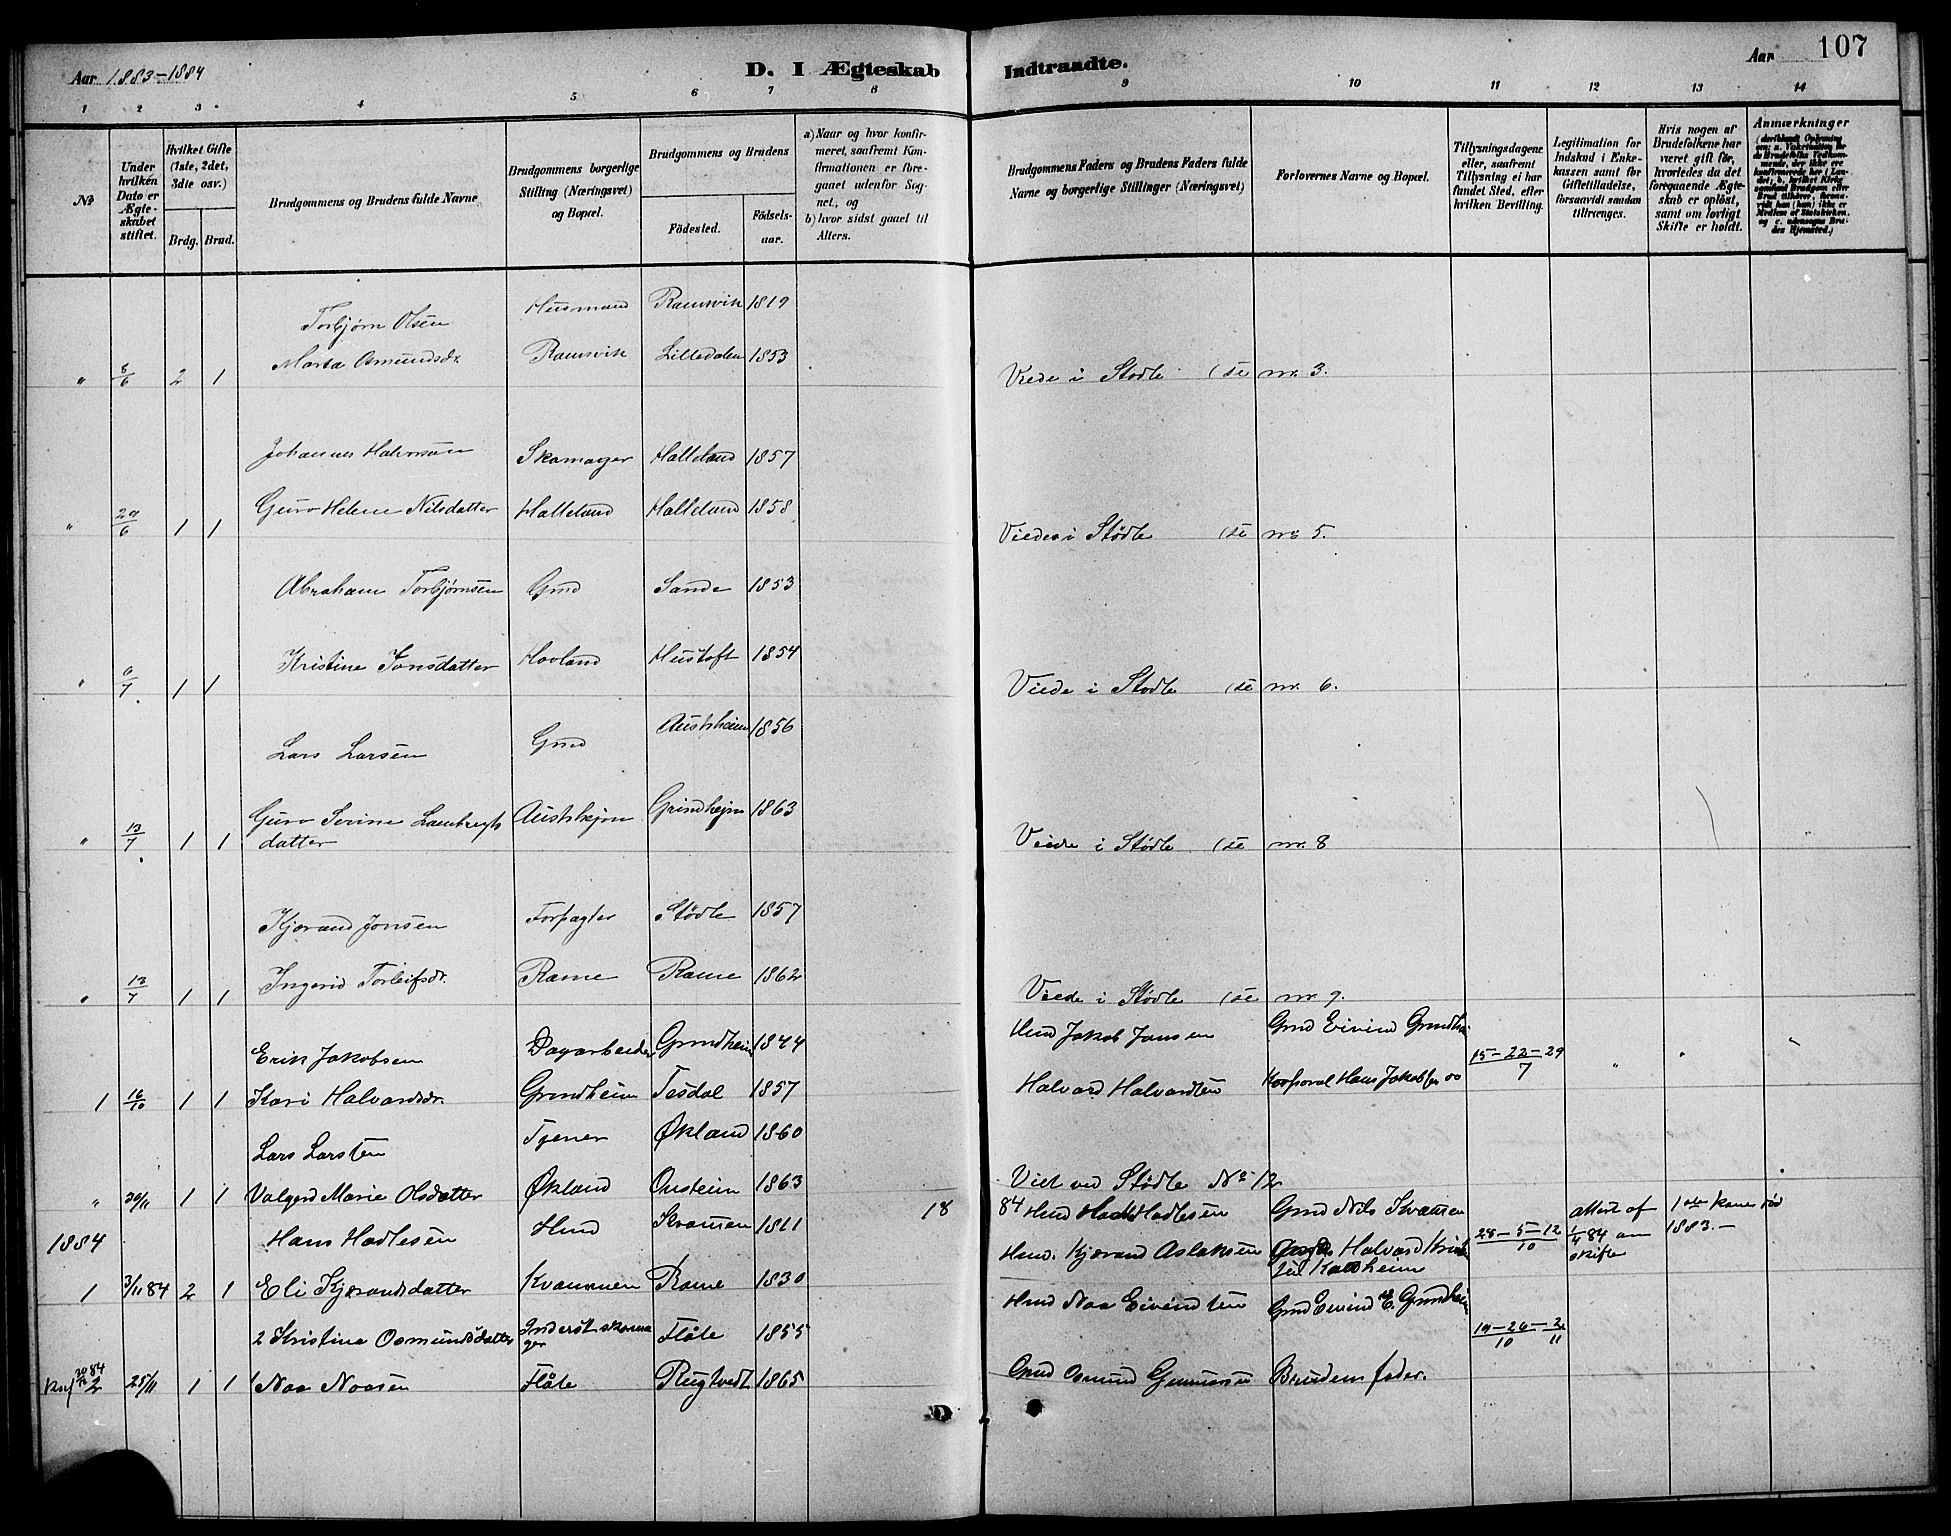 Aar 1883-1884
D. I Ægteskab Indtraadte.
Aar 107
1 2 3 4 5 6 7 8 9 10 11 12 13 14
No
Under hvilken Dato er Ægteskabet stiftet.
Hvilket Gifte (1ste, 2det, 3die osv.)
Brdg. Brud.
Brudgommens og Brudens fulde Navne
Brudgommens borgerlige Stilling (Næringsvei) og Bopæl.
Brudgommens og Brudens
Fødested.
Fødselsaar.
a) Naar og hvor konfirmeret, saafremt Konfirmationen er foregaaet udenfor Sognet, og
b) hvor sidst gaaet til Alters.
Brudgommens Faders og Brudens Faders fulde Navne og borgerlige Stillinger (Næringsvei)
Forlovernes Navne og Bopæl.
Tillysningsdagene eller, saafremt Tillysning ei har fundet Sted, efter hvilken Bevilling.
Legitimation for Indskud i Enkekassen samt for Giftetilladelse, forsaavidt saadan tiltrænges.
Hvis nogen af Brudefolkene har været gift før, hvorledes da det foregaaende Ægteskab er opløst, samt om lovligt Skifte er holdt.
Anmærkninger
Torbjørn Olsen Husmand Ramsvik 1819
" 8/6 2 1 Marta Osmundsdr. Ramsvik Lilledalen 1853 Viede i Stødle (se nr. 3.
Johannes Halvorsen Skomager Halleland 1857
" 29/6 1 1 Guro Helene Nilsdatter Halleland Halleland 1858 Viedes i Stødle (se no 5.
Abraham Torbjørnsen Gmd Sande 1853
" 6/7 1 1 Kristine Jonsdatter Hovland Hustoft 1854 Viede i Stødle (se nr. 6.
Lars Larsen Gmd Austrheim 1856
" 13/7 1 1 Guro Serine Lambregts Austrhejm Grindhejm 1863
datter Viede i Stødle (se nr. 8
Kjærand Jonsen Forpagter Stødle 1857
" 13/7 1 1 Ingerid Torleifsdr. Rame Rame 1862 Viede i Stødle (se nr. 9.
Erik Jakobsen Dagarbeider Grindheim 1844 Hmd Jakob Jansen Gmd Eivind Grindhe. 15-22-29/7 "
1 16/10 1 1 Kari Halvardsdr. Grindheim Tesdal 1857 Halvard Halvardsen Korporal Hans Jakobsen
Lars Larsen Tjener Økland 1860
" 20/11 1 1 Valgerd Marie Olsdatter Økland Onsteim 1863 Viet ved Stødle No 12
1884 Hans Hadlesen Hmd Kvamen 1811 1884 Hmd Hadle Hadlesen Gmd Nils Kvamen 28-5-12/10 attest af 1/4 84 om skifte 1ste Kone død 1883.-
1 3/11 84 2 1 Eli Kjærandsdatter Kvammen Rame 1830 Hmd. Kjærand Aslaksen Halvard
2 Kristina Osmundsdatter Inderst skomager Fløte 1855 Hmd Naa Eivindsen Gmd Eivind E. Grindheim 19-26-2/10 11
2 25/11 1 1 Naa Naasen Fløte Rugtvedt 1865 Gmd Osmund Gunnarsen Brudens fader.